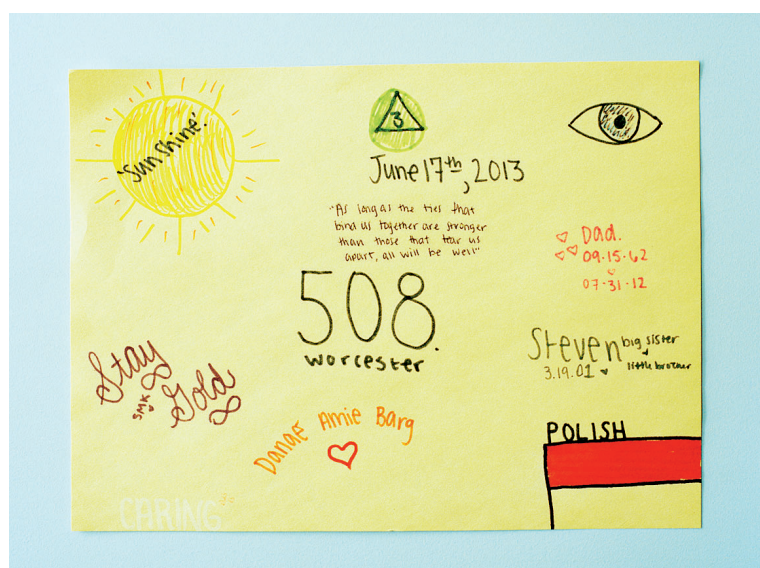 'Sunshine'.
3
June 17th, 2013
"As long as the ties that
bind us together are stronger
than those that tear us
apart, all will be well"
Dad.
09.15.62
07.31.12
508.
worcester
Steven big sister
3.19.01 little brother
Stay
Gold
SMK
Danaer Amie Barg
POLISH
CARING